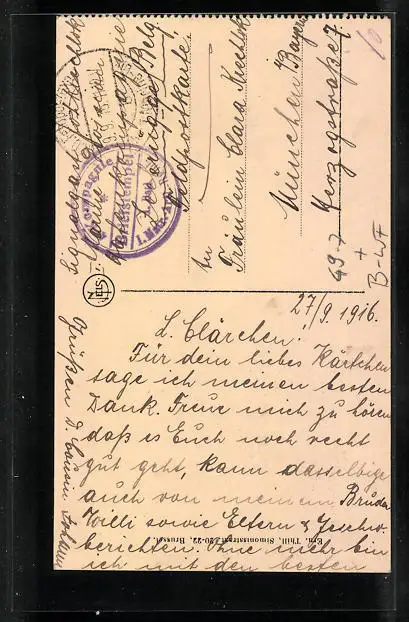 Feldpostkarte.
An
Fräulein Clara Knechtek
München /Bayern
Herzogstraße 7
49-7
+
B-WF
10
Kompagnie
Briefstempel
NELS
27/9. 1916.
L. Clärchen!
Für dein liebes Kärtchen
sage ich meinen besten
Dank. Freue mich zu hören
daß es Euch noch recht
gut geht, kann dasselbige
auch von meinem Bruder
Willi sowie Eltern & Geschw.
berichten. Ohne mehr bin
ich mit den besten
Grüßen D. Cousin Johann
Ern. Thill, Simonsstraat 20-22, Brussel.